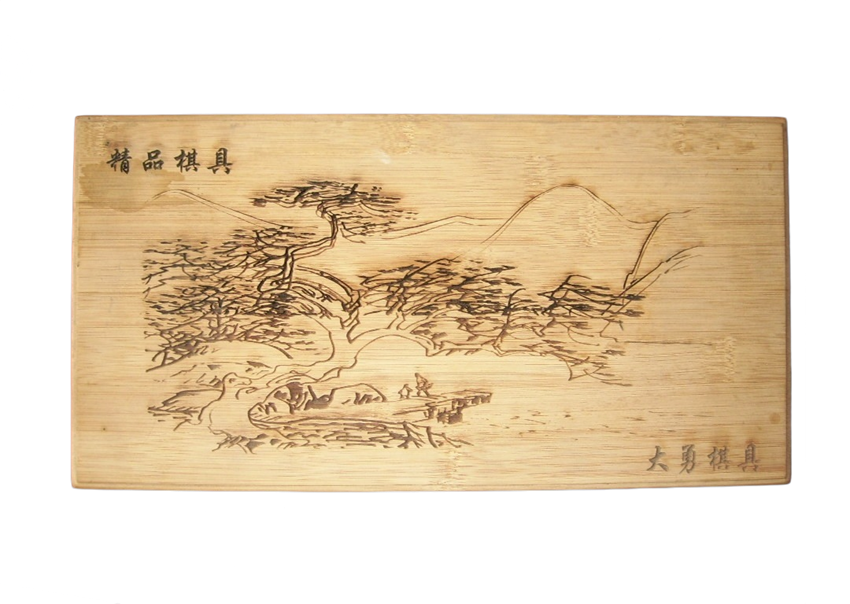 精品棋具
大勇棋具